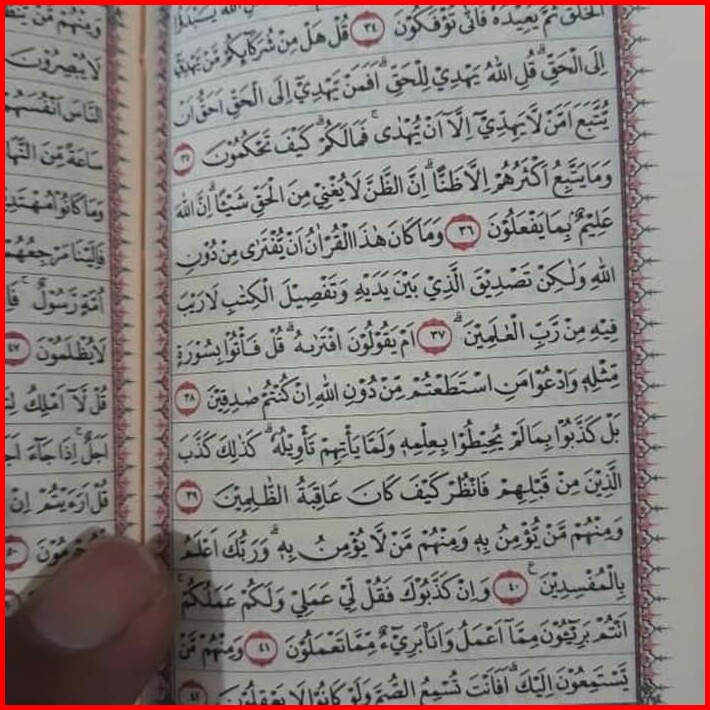 الْخَلْقَ ثُمَّ يُعِيْدُهٗ فَاَنّٰى تُؤْفَكُوْنَ ٣٤ قُلْ هَلْ مِنْ شُرَكَاۤىِٕكُمْ مَّنْ يَّهْدِيْٓ
اِلَى الْحَقِّۗ قُلِ اللّٰهُ يَهْدِيْ لِلْحَقِّۗ اَفَمَنْ يَّهْدِيْٓ اِلَى الْحَقِّ اَحَقُّ اَنْ
يُّتَّبَعَ اَمَّنْ لَّا يَهِدِّيْٓ اِلَّآ اَنْ يُّهْدٰىۚ فَمَا لَكُمْۗ كَيْفَ تَحْكُمُوْنَ ٣٥
وَمَا يَتَّبِعُ اَكْثَرُهُمْ اِلَّا ظَنًّاۗ اِنَّ الظَّنَّ لَا يُغْنِيْ مِنَ الْحَقِّ شَيْـًٔاۗ اِنَّ اللّٰهَ
عَلِيْمٌۢ بِمَا يَفْعَلُوْنَ ٣٦ وَمَا كَانَ هٰذَا الْقُرْاٰنُ اَنْ يُّفْتَرٰى مِنْ دُوْنِ
اللّٰهِ وَلٰكِنْ تَصْدِيْقَ الَّذِيْ بَيْنَ يَدَيْهِ وَتَفْصِيْلَ الْكِتٰبِ لَا رَيْبَ
فِيْهِ مِنْ رَّبِّ الْعٰلَمِيْنَۗ ٣٧ اَمْ يَقُوْلُوْنَ افْتَرٰىهُۗ قُلْ فَأْتُوْا بِسُوْرَةٍ
مِّثْلِهٖ وَادْعُوْا مَنِ اسْتَطَعْتُمْ مِّنْ دُوْنِ اللّٰهِ اِنْ كُنْتُمْ صٰدِقِيْنَ ٣٨
بَلْ كَذَّبُوْا بِمَا لَمْ يُحِيْطُوْا بِعِلْمِهٖ وَلَمَّا يَأْتِهِمْ تَأْوِيْلُهٗۗ كَذٰلِكَ كَذَّبَ
الَّذِيْنَ مِنْ قَبْلِهِمْ فَانْظُرْ كَيْفَ كَانَ عَاقِبَةُ الظّٰلِمِيْنَ ٣٩
وَمِنْهُمْ مَّنْ يُّؤْمِنُ بِهٖ وَمِنْهُمْ مَّنْ لَّا يُؤْمِنُ بِهٖۗ وَرَبُّكَ اَعْلَمُ
بِالْمُفْسِدِيْنَ ࣖ ٤٠ وَاِنْ كَذَّبُوْكَ فَقُلْ لِّيْ عَمَلِيْ وَلَكُمْ عَمَلُكُمْۚ
اَنْتُمْ بَرِيْۤـُٔوْنَ مِمَّآ اَعْمَلُ وَاَنَا۠ بَرِيْۤءٌ مِّمَّا تَعْمَلُوْنَ ٤١ وَمِنْهُمْ مَّنْ
يَّسْتَمِعُوْنَ اِلَيْكَۗ اَفَاَنْتَ تُسْمِعُ الصُّمَّ وَلَوْ كَانُوْا لَا يَعْقِلُوْنَ ٤٢
وَمِنْهُمْ مَّنْ
لَا يُبْصِرُوْنَ
النَّاسَ اَنْفُسَهُمْ
سَاعَةً مِّنَ
وَمَا كَانُوْا
فَاِلَيْنَا مَرْجِعُهُمْ
اُمَّةٍ رَّسُوْلٌۚ
لَا يُظْلَمُوْنَ ٤٧
قُلْ لَّآ اَمْلِكُ
اَجَلٌۚ اِذَا جَاۤءَ
قُلْ اَرَءَيْتُمْ اِنْ